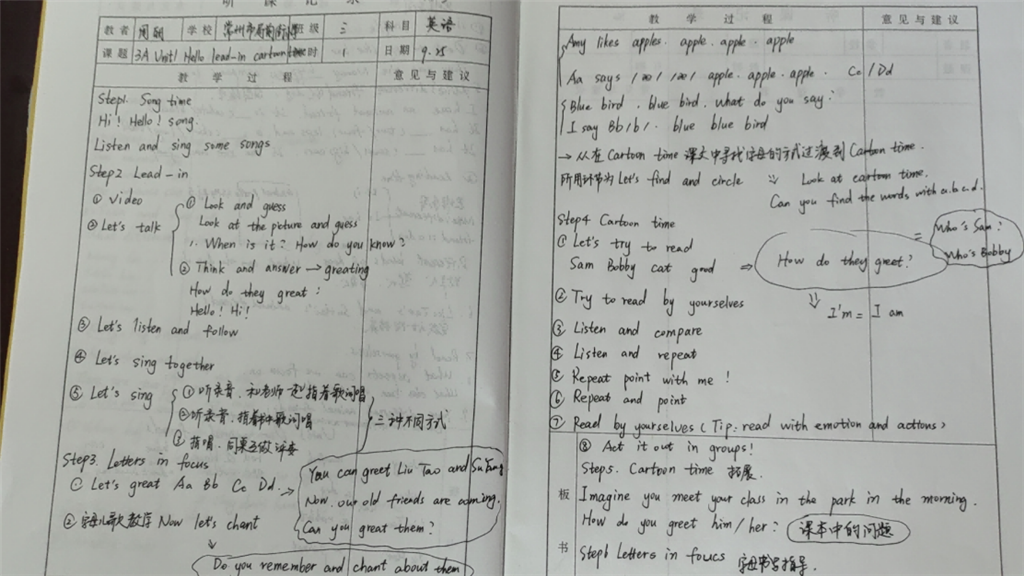 听课记录
教者 周 学校 常州市局前街小学 班级 三 科目 英语
课题 3A Unit1 Hello lead-in cartoon time 课时 1 日期 9.25
教学过程 意见与建议
Step1. Song time
Hi! Hello! song.
Listen and sing some songs
Step2 Lead-in
① video
② Let's talk
① Look and guess
Look at the picture and guess
1. When is it? How do you know?
② Think and answer → greating
How do they great:
Hello! Hi!
③ Let's listen and follow
④ Let's sing together
⑤ Let's sing
① 听录音,和老师一起指着歌词唱
② 听录音,指着歌词唱
③ 指唱,同桌互做评委
三种不同方式
Step3. Letters in focus
① Let's great Aa Bb Cc Dd. →
You can greet Liu Tao and Su Yang
Now, our old friends are coming.
Can you great them?
② 字母儿歌教学 Now let's chant
Do you remember and chant about them
教学过程 意见与建议
Amy likes apples. apple. apple. apple
Aa says /æ/ /æ/ apple. apple. apple. Cc / Dd
Blue bird. blue bird. what do you say?
I say Bb /b/. blue blue bird
→ 从在Cartoon time 课文中寻找字母的方式过渡到Cartoon time.
所用环节为 Let's find and circle
Look at cartoon time.
Can you find the words with a.b.c.d.
Step4 Cartoon time
① Let's try to read
Sam Bobby cat good ⇒ How do they greet? = Who's Sam?
Who's Bobby
② Try to read by yourselves
I'm = I am
③ Listen and compare
④ Listen and repeat
⑤ Repeat point with me!
⑥ Repeat and point
⑦ Read by yourselves (Tip: read with emotion and actions)
⑧ Act it out in groups!
Step5. Cartoon time 拓展.
板 Imagine you meet your class in the park in the morning.
How do you greet him/her: 课本中的问题
书 Step6 Letters in foucs 字母书写指导.